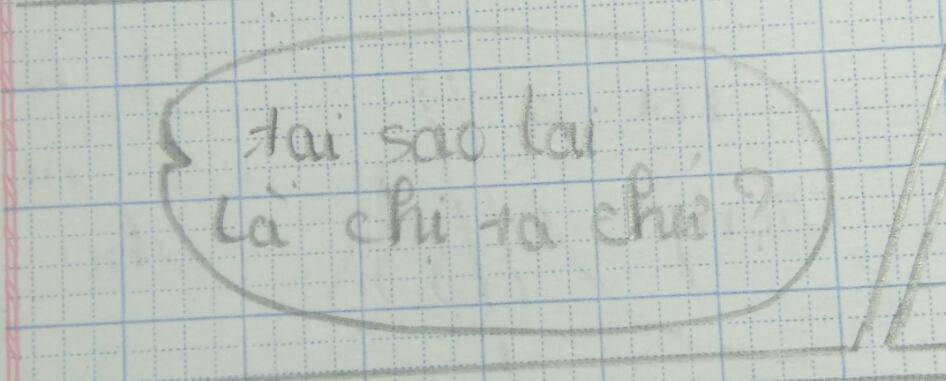 tại sao lại
Là chị ta chứ?